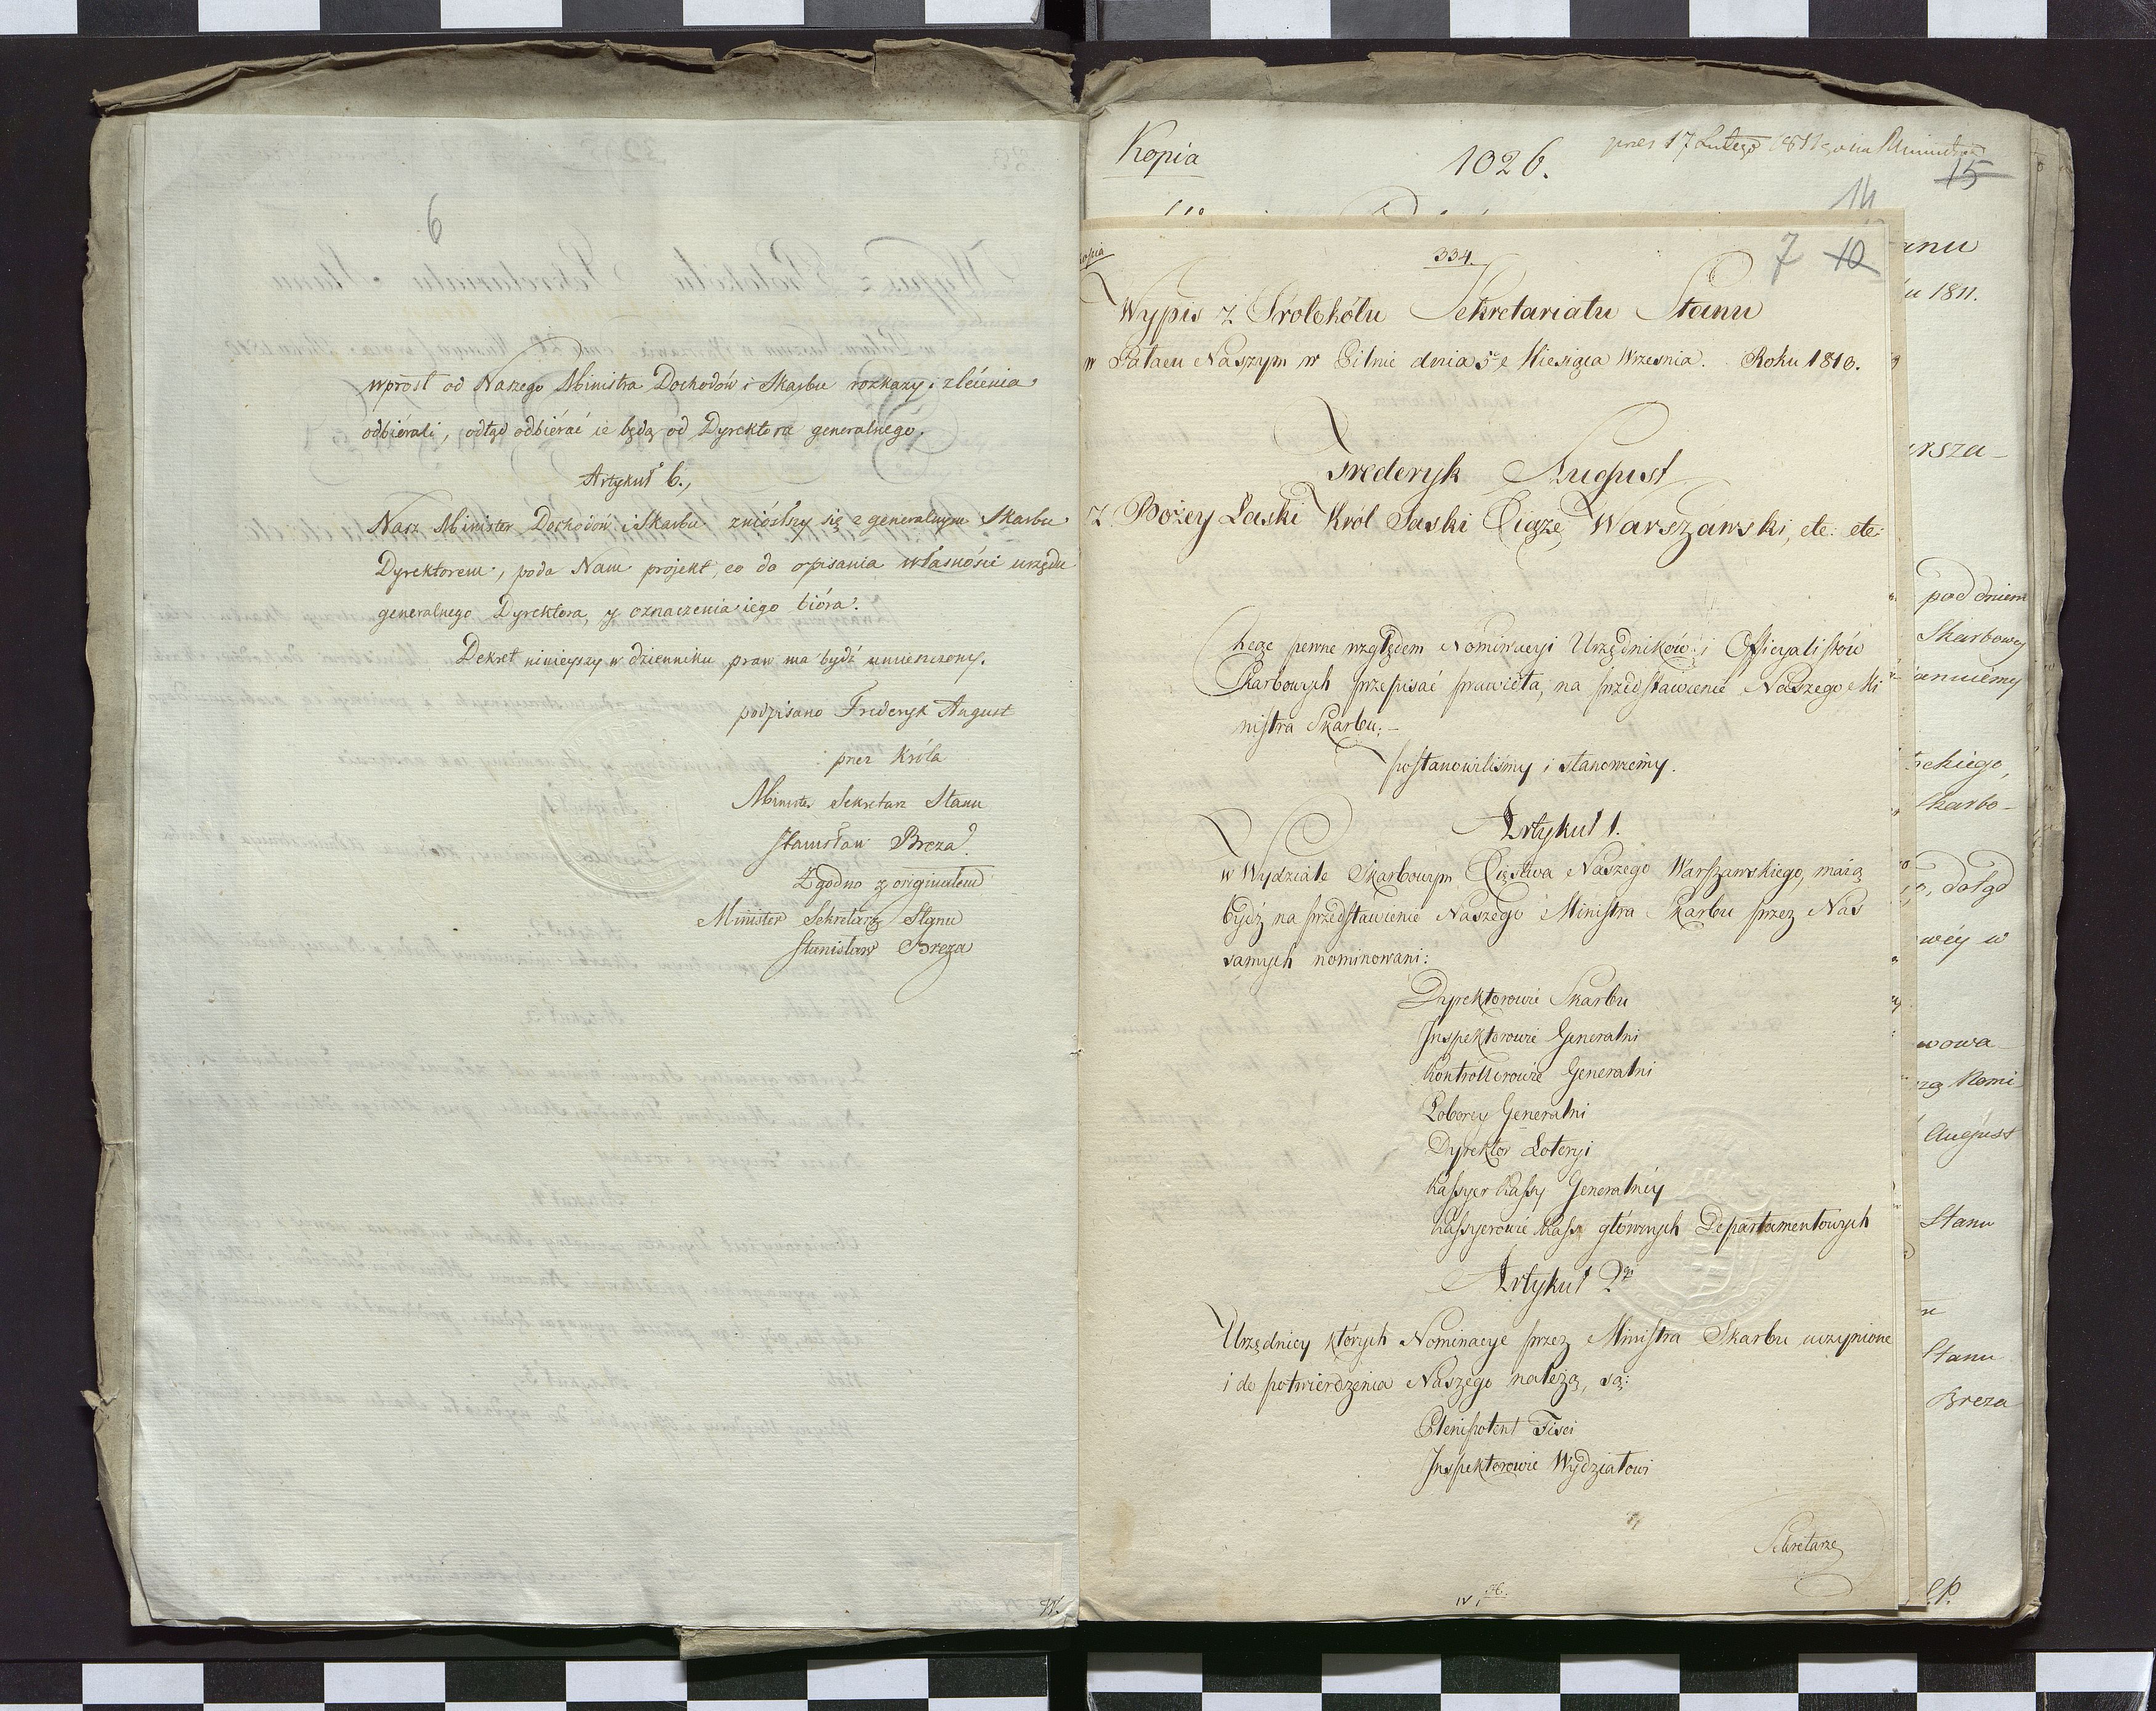 6
wprost od Naszego Ministra Dochodów i Skarbu rozkazy i zlecenia
odbiérali, odtąd odbiérać ie będą od Dyrektora generalnégo.
Artykuł 6.,
Nasz Minister Dochodów i Skarbu zniósłszy się z generalnym Skarbu
Dyrektorem, poda Nam projekt, co do opisania własności urzędu
generalnego Dyrektora, y oznaczenia iego bióra.
Dekret ninieyszy w dzienniku praw ma bydź umiesczony.
podpisano Frideryk August
przez Króla
Minister Sekretarz Stanu
Stanisław Breza
Zgodno z originałem
Minister Sekretarz Stanu
Stanisław Breza
Kopia
1026.
przez 17 Lutego 1811
15
14
Kopia
334.
7 10
Wypis z Protokółu Sekretariatu Stanu
w Pałacu Naszym w Pilnic dnia 5go Miesiąca Wrzesnia. Roku 1810.
Frederyk August
z Bożey Łaski Król Saski Xiąże Warszawski, etc: etc:
Chcąc pewne względem Nominacyi Urzędników i Officyalistów
Skarbowych przepisać prawidła, na przedstawienie Naszego Mi
nistra Skarbu; –
postanowiliśmy i stanowiemy.
Artykuł 1.
w Wydziale Skarbowym Xięstwa Naszego Warszawskiego, maią
bydź na przedstawienie Naszego Ministra Skarbu przez Nas
samych nominowani:
Dyrektorowie Skarbu
Inspektorowie Generalni
Kontrollerowie Generalni
Poborcy Generalni
Dyrektor Loteryi
Kassyer Kassy Generalnéy
Kassyerowie Kass głównych Departamentowych
Artykuł 2gi
Urzędnicy których Nominacye przez Ministra Skarbu uczynione
i do potwierdzenia Naszego należą, są:
Plenipotent Fisci
Inspektorowie Wydziałowi
Sekretarze
anu
u 1811.
arsza-
pod dniem
Skarbowey
anuiémy
ckiego,
Skarbo-
dotąd
wéy w
wowa-
Nomi-
August
Stanu
Stanu
Breza